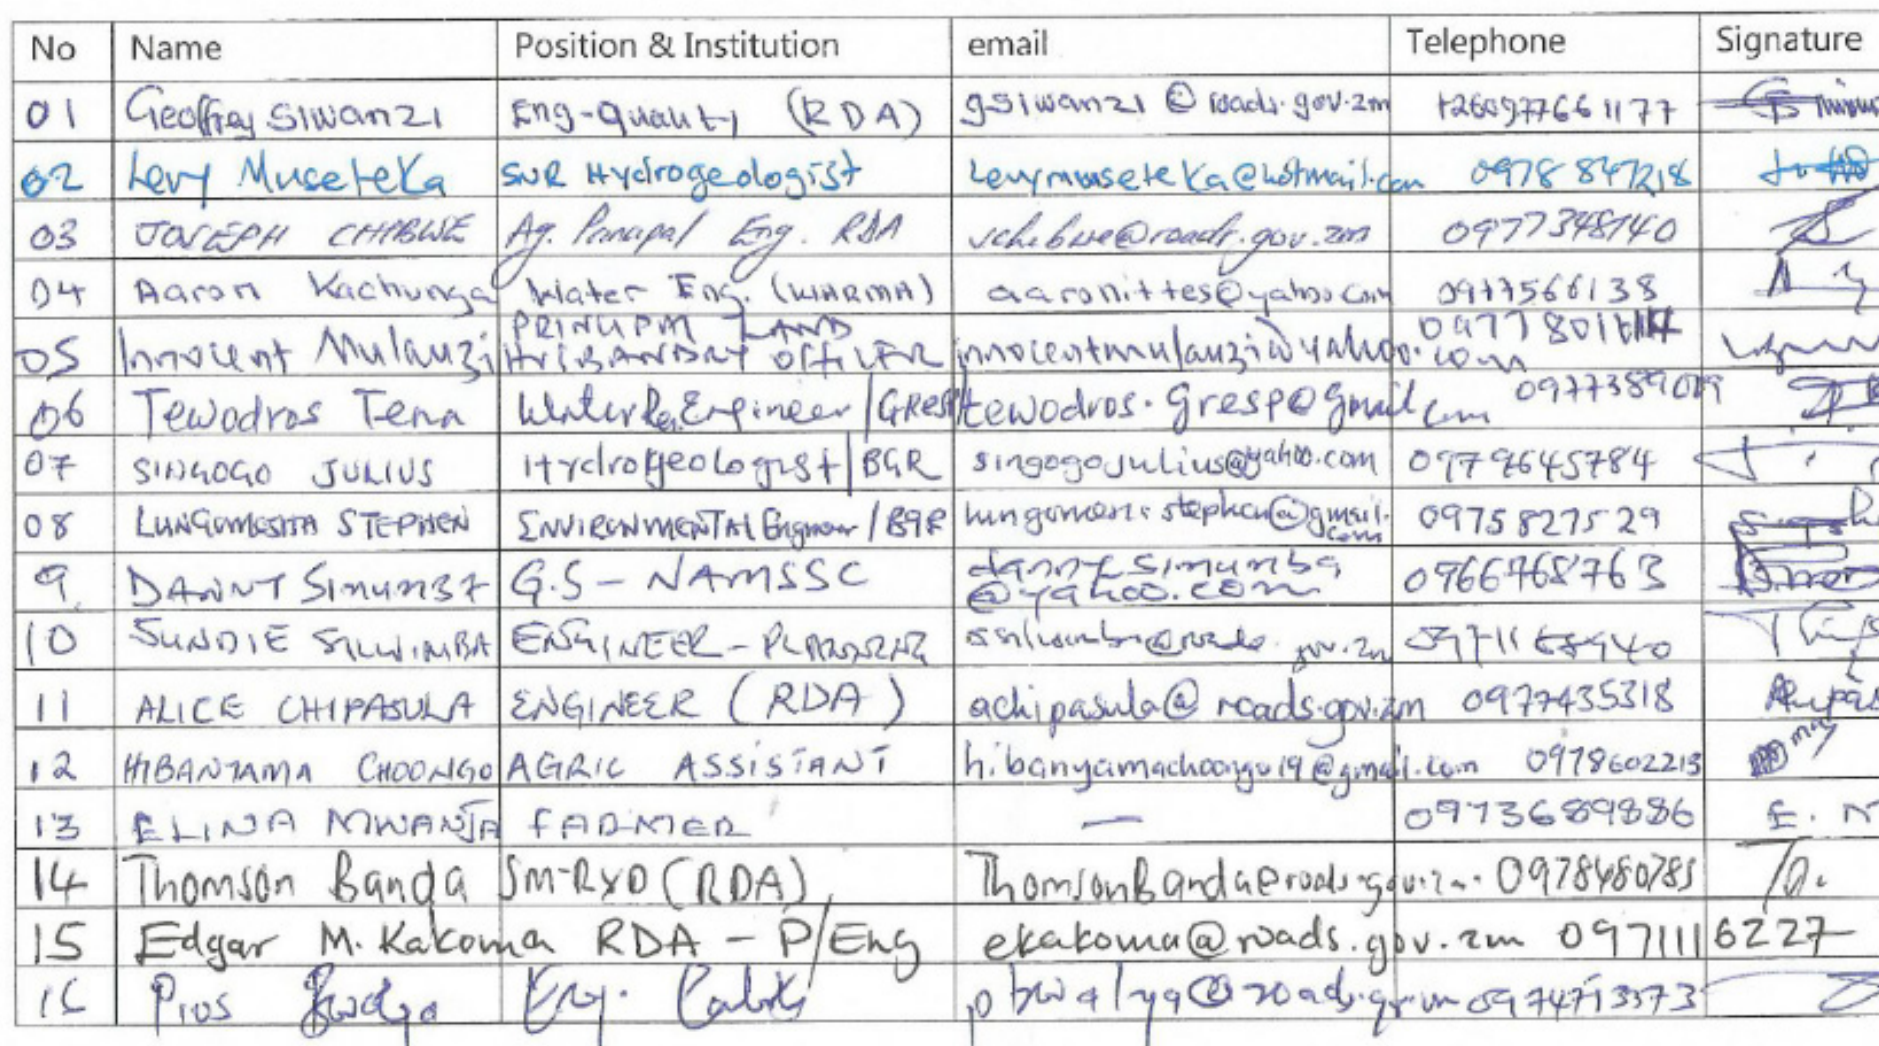 No Name Position & Institution email Telephone Signature
01 Geoffrey Siwanzi Eng-Quality (RDA) gsiwanzi@roads.gov.zm +260977661177
02 Levy Museteka SNR Hydrogeologist levymuseteka@hotmail.com 0978847218
03 JOSEPH CHIBWE Ag. Principal Eng. RDA jchibwe@roads.gov.zm 0977348140
04 Aaron Kachunga Water Eng. (WARMA) aaronittes@yahoo.com 0977566138
05 Innocent Mulauzi PRINCIPAL LAND HUSBANDRY OFFICER innocentmulauzi@yahoo.com
06 Tewodros Tena Engineer/GRESP tewodros.gresp@gmail.com
07 SINGOGO JULIUS Hydrogeologist/BGR singogojulius@yahoo.com 0979645784
08 STEPHEN ENVIRONMENTAL Engineer/BGR 0975827529
9 G.S-NAMSSC 0966768763
10 SUNDIE SILWIMBA ENGINEER-PLANNING
11 ALICE CHIPASULA ENGINEER (RDA) achipasula@roads.gov.zm 0977435318
12 HIBANYAMA CHOONGO AGRIC ASSISTANT hibanyamachoongo19@gmail.com 0978602213
13 ELINA MWANJA FARMER — 0973689886 E.
14 Thomson Banda (RDA) ThomsonBanda@roads.gov.zm
15 Edgar M. Kakoma RDA - P/Eng ekakoma@roads.gov.zm 0971116227
16 Pios Eng. pbwalya@roads.gov.zm